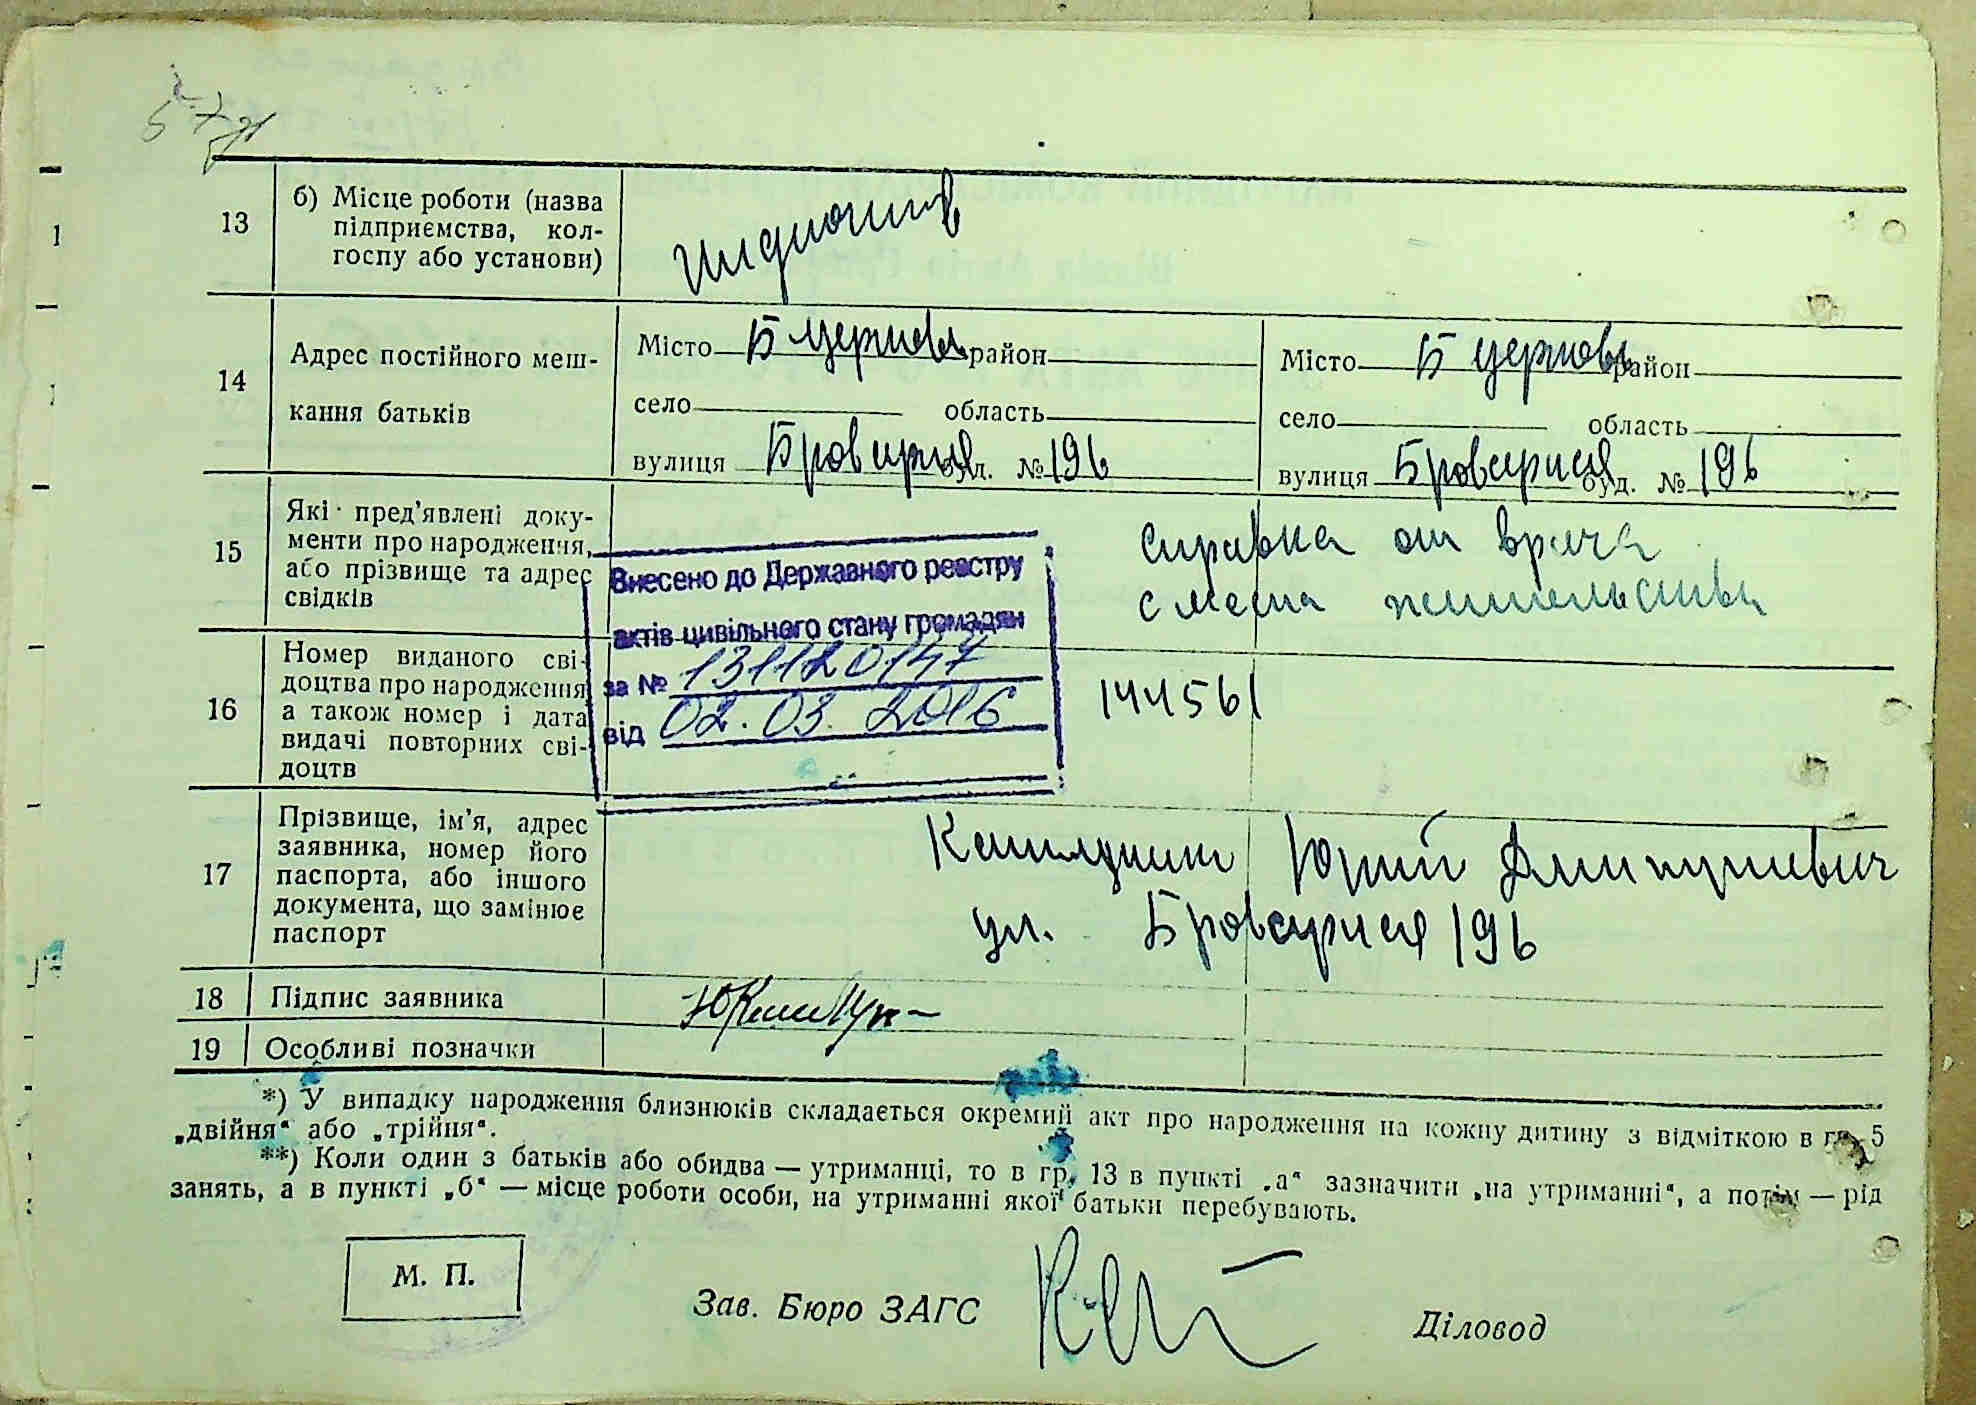 57
13
б) Місце роботи (назва
підприємства, кол-
госпу або установи)
14
Адрес постійного меш-
кання батьків
Місто Б церковь район
село область
вулиця буд. № 196
Місто Б церковь район
село область
вулиця буд. № 196
15
Які пред'явлені доку-
менти про народження,
або прізвище та адрес
свідків
справка от врача
с места жительства
Внесено до Державного реєстру
актів цивільного стану громадян
за № 131120147
від 02.03.2016
16
Номер виданого сві-
доцтва про народження
а також номер і дата
видачі повторних сві-
доцтв
144561
17
Прізвище, ім'я, адрес
заявника, номер його
паспорта, або іншого
документа, що замінює
паспорт
Юрий Дмитриевич
ул. 196
18
Підпис заявника
19
Особливі позначки
*) У випадку народження близнюків складається окремий акт про народження на кожну дитину з відміткою в гр. 5
„двійня“ або „трійня“.
**) Коли один з батьків або обидва — утриманці, то в гр. 13 в пункті „а“ зазначити „на утриманні“, а потім — рід
занять, а в пункті „б“ — місце роботи особи, на утриманні якої батьки перебувають.
М. П.
Зав. Бюро ЗАГС
Діловод